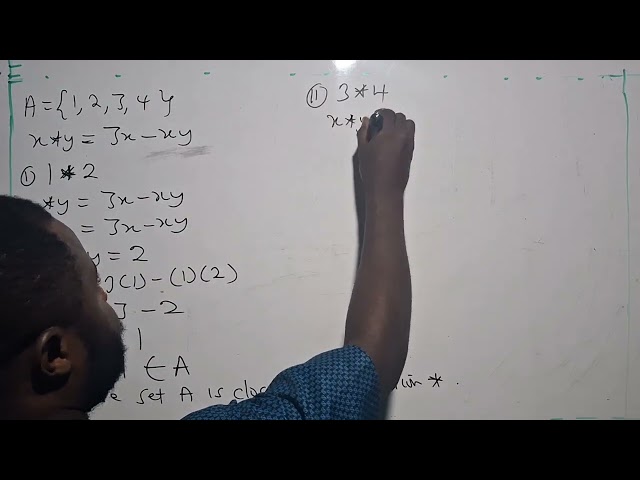 A = {1, 2, 3, 4}
x*y = 3x - xy
(i) 1 * 2
*y = 3x - xy
= 3x - xy
y = 2
(1) - (1)(2)
3 - 2
1
∈ A
set A is
*.
(ii) 3*4
x*